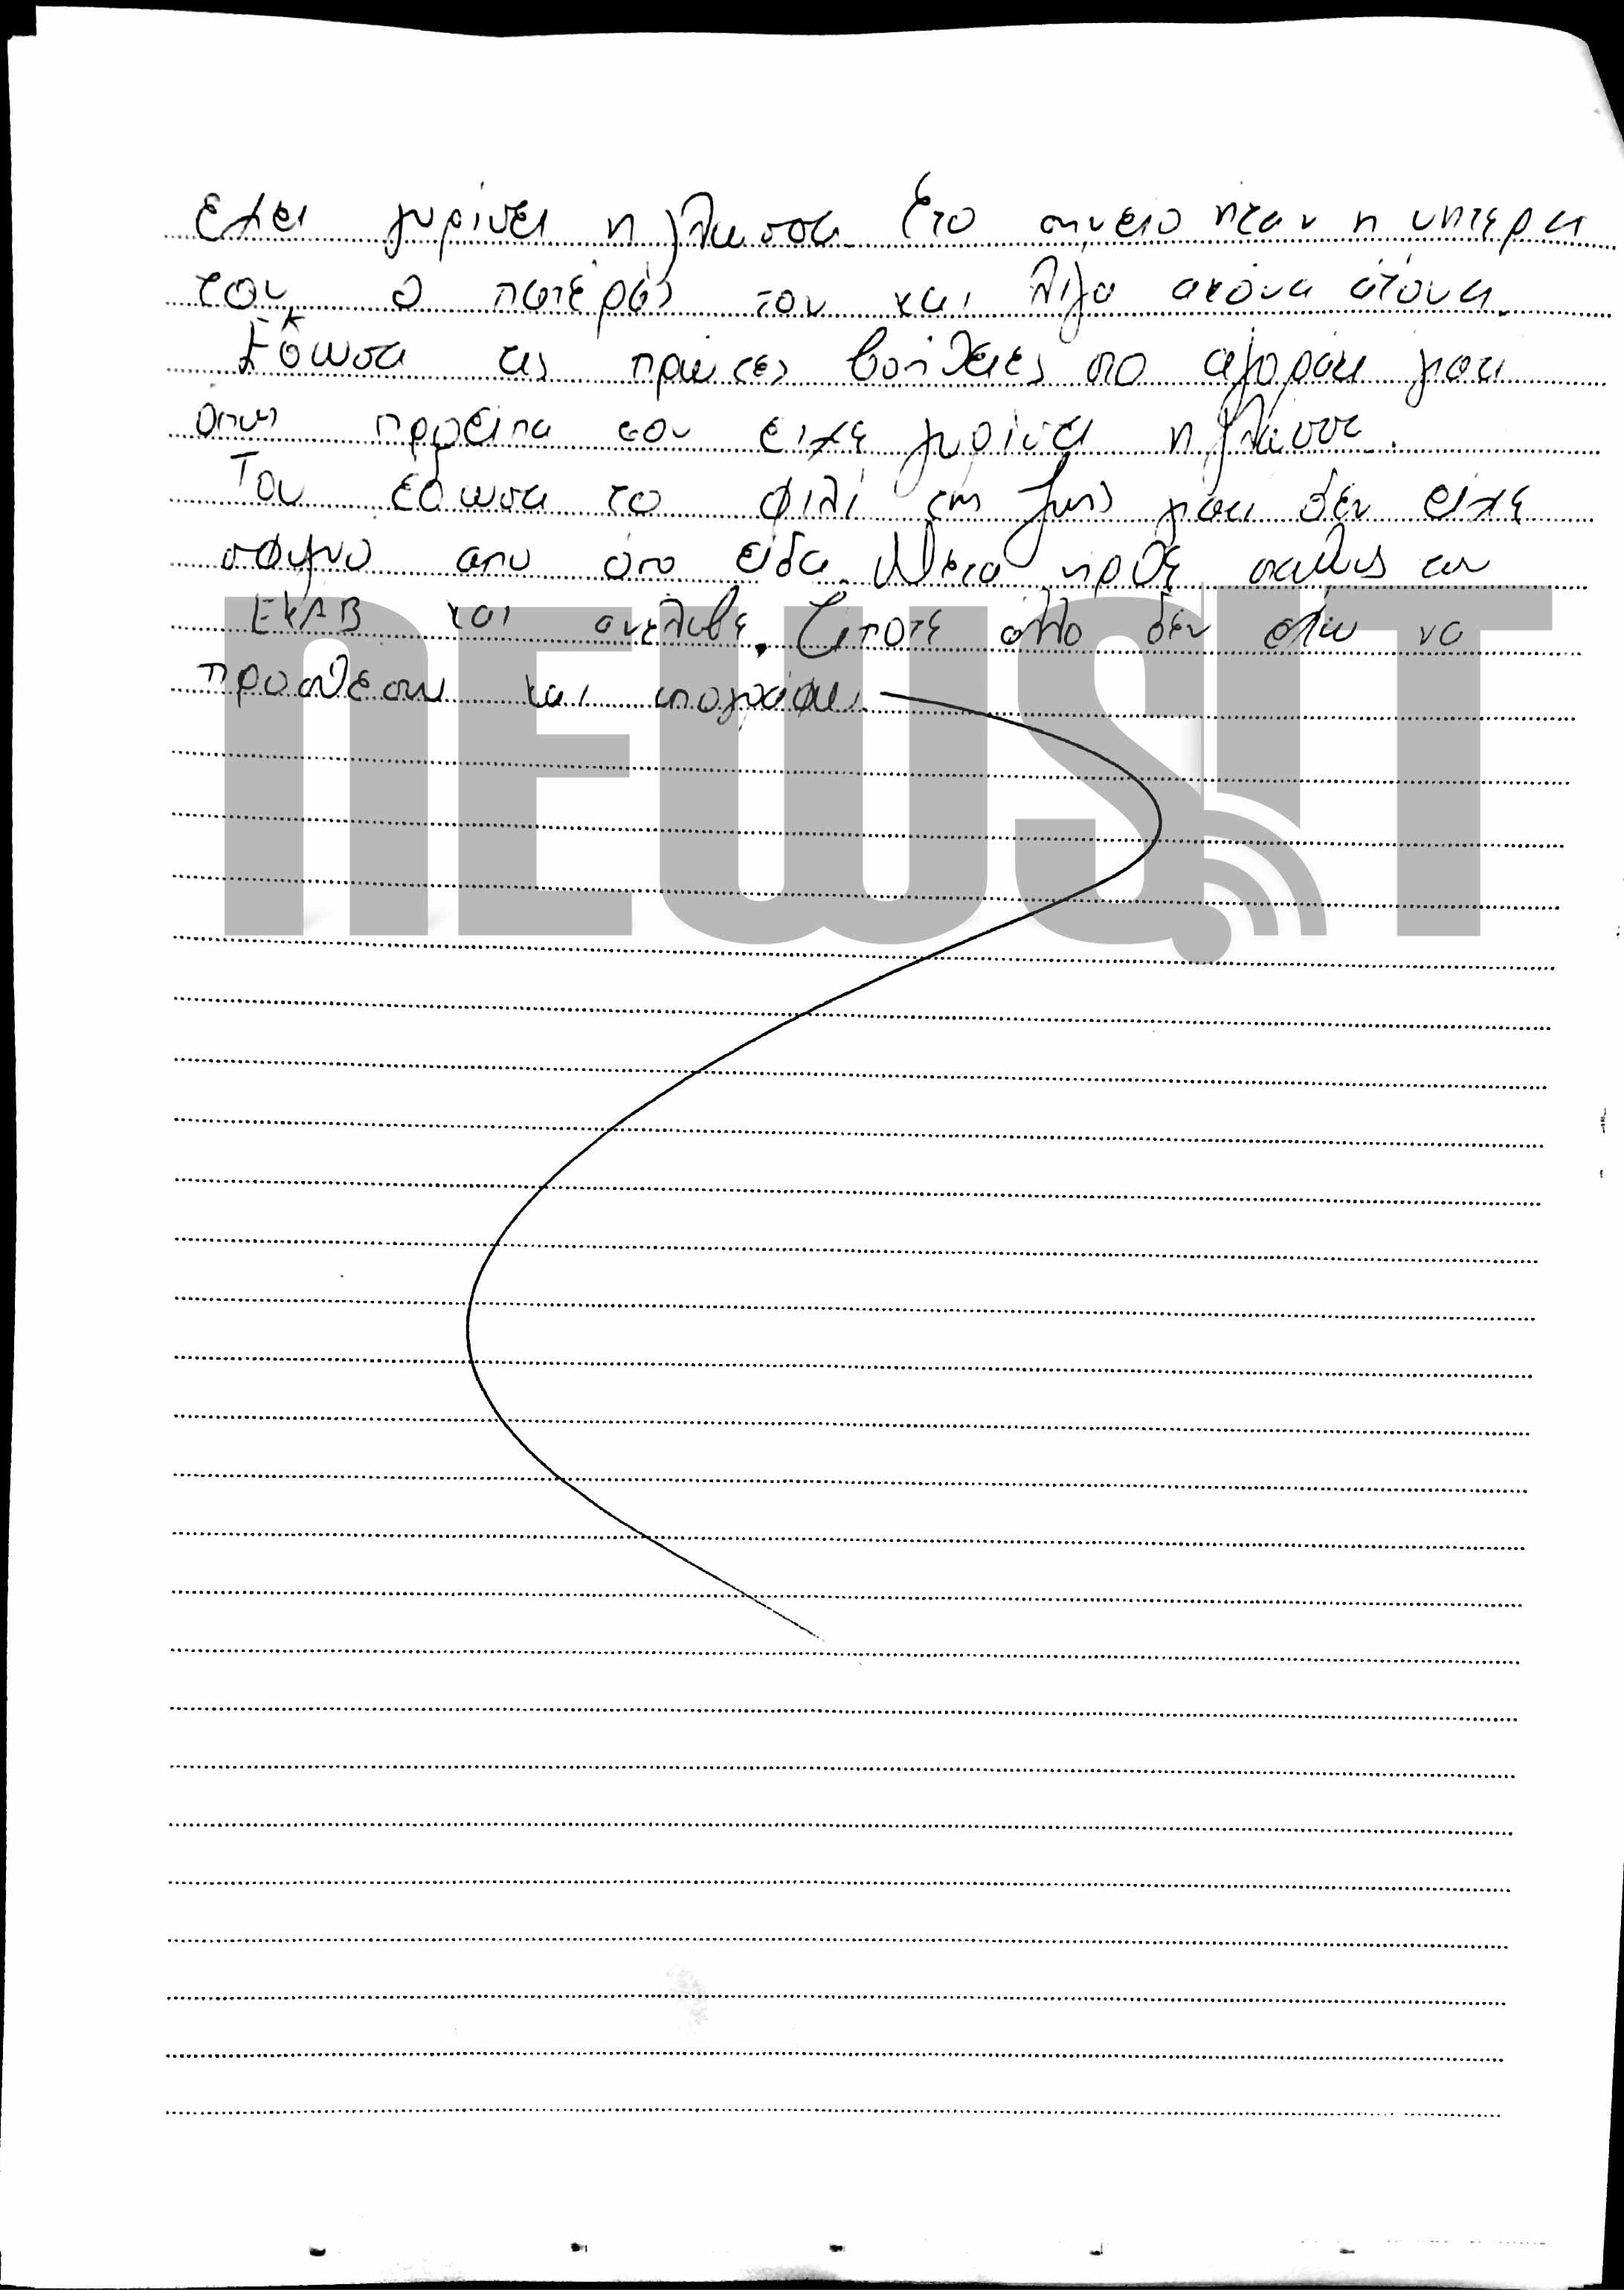 έχει γυρίσει η γλώσσα. Στο σημείο ήταν η μητέρα
του, ο πατέρας του και λίγα ακόμα άτομα.
Έδωσα τις πρώτες βοήθειες στο αγοράκι γιατι
όπως προείπα του είχε γυρίσει η γλώσσα.
Του έδωσα το φιλί της ζωής γιατι δεν είχε
σφυγμό απο ότι είδα. Μετά ήρθε το
ΕΚΑΒ και ανέλαβε. Τίποτε άλλο δεν έχω να
προσθέσω και υπογράφω.
NEWSIT